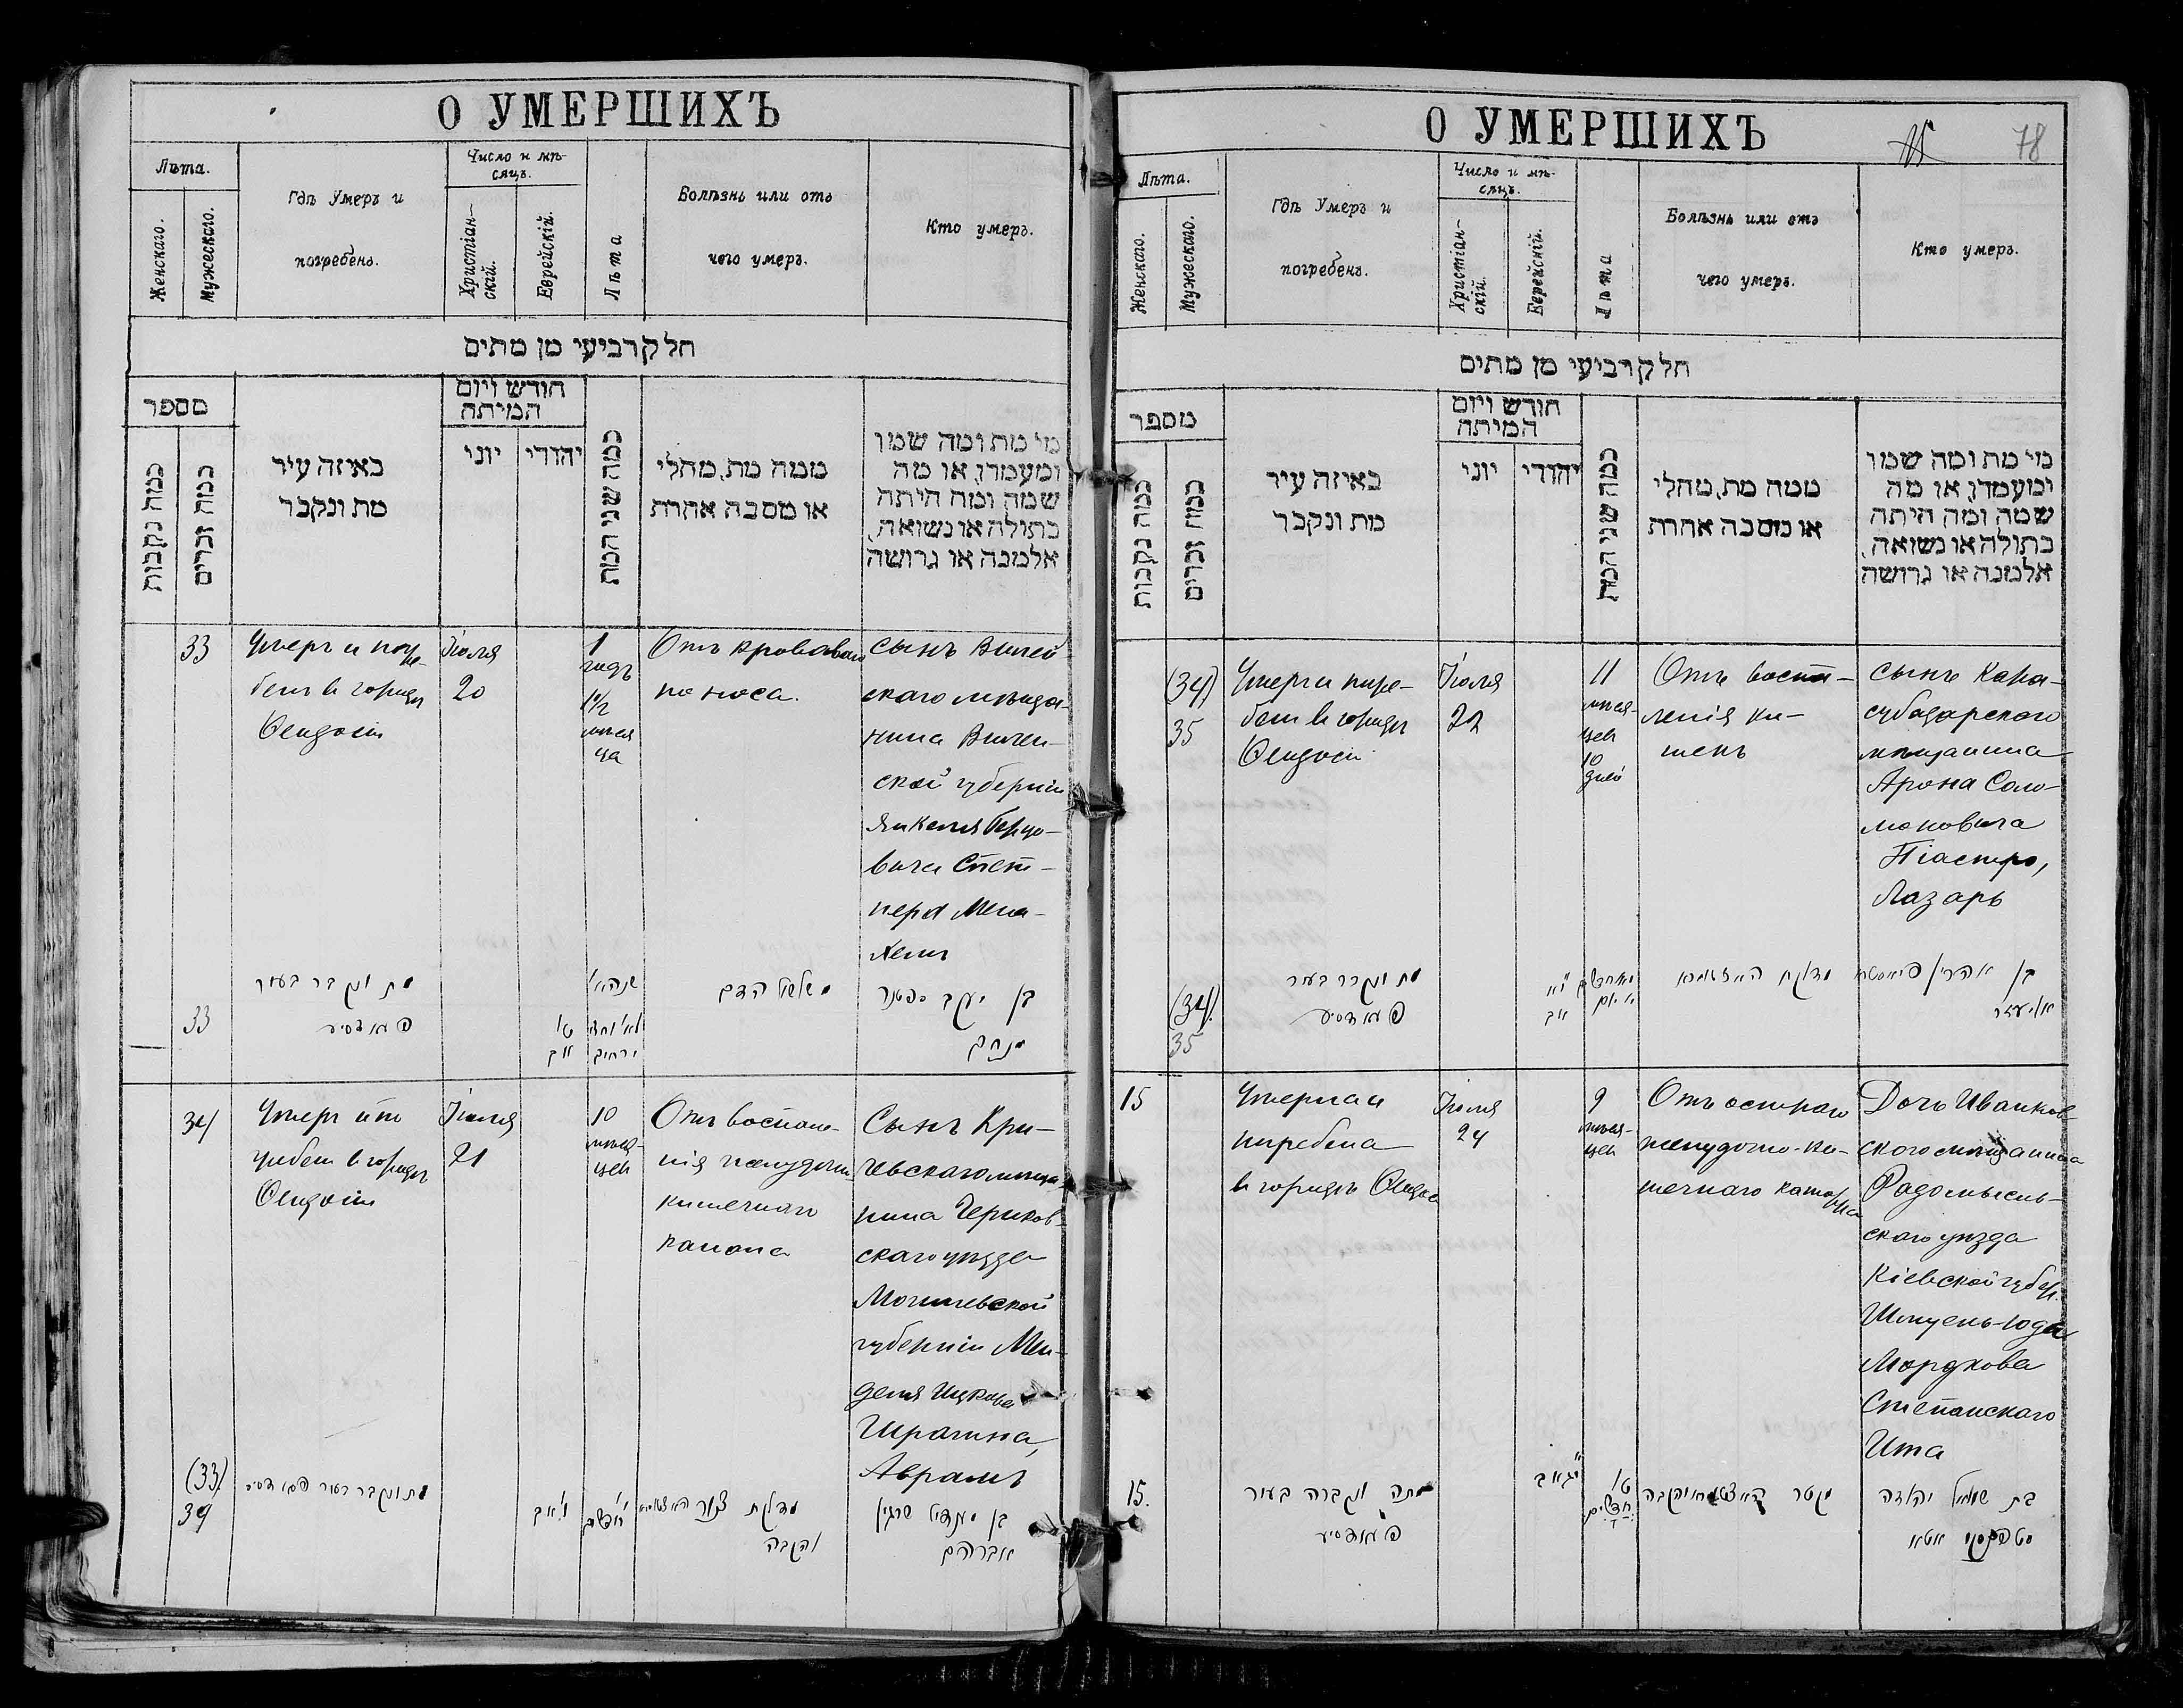 О УМЕРШИХЪ
Лѣта.
Женскаго.
Мужескаго.
Гдѣ Умеръ и
погребенъ.
Число и мѣ-
сяцъ.
Христіан-
скій.
Еврейскій.
Лѣта
Болѣзнь или отъ
чего умеръ.
Кто умеръ.
חלק רביעי מן מתים
מספר
כמה נקבות
כמה זכרים
באיזה עיר
מת ונקבר
חודש ויום
המיתה
יוני
יהודי
כמה שני המת
ממה מת, מחלי
או מסבה אחרת
מי מת ומה שמו
ומעמדו, או מה
שמה ומה היתה
בתולה או נשואה,
אלמנה או גרושה
33
Умеръ и погре-
бенъ в городѣ
Ѳеодосіи
Іюля
20
1
годъ
1½
мѣся
ца
Отъ кроваваго
поноса.
Сынъ Вилей
скаго мѣща-
нина Вилен-
ской губерніи
Янкеля Берко-
вича
Мена-
хемъ
33
מת ונקבר בעיר
פעאדסיע
ט'
אב
שנה א'
ירחים
משלשול הדם
בן יעקב
מנחם
34
Умеръ и по
гребенъ в городѣ
Ѳеодосіи
Іюля
21
10
мѣся-
цевъ
Отъ воспале-
нія желудочно
кишечнаго
канала
Сынъ Кри-
чевскаго мѣща-
нина Чериков-
скаго уѣзда
Могилевской
губерніи Мен-
деля Ицкова
Шрагина,
Абрамъ
(33)
34
מת ונקבר בעיר פעאדסיע
י' אב
י'
חדשים
מדלקת צנור האצטומכא
והקבה
בן מענדיל שרגין
אברהם
О УМЕРШИХЪ
78
Лѣта.
Женскаго.
Мужескаго.
Гдѣ Умеръ и
погребенъ.
Число и мѣ-
сяцъ.
Христіан-
скій.
Еврейскій.
Лѣта
Болѣзнь или отъ
чего умеръ.
Кто умеръ.
חלק רביעי מן מתים
מספר
כמה נקבות
כמה זכרים
באיזה עיר
מת ונקבר
חודש ויום
המיתה
יוני
יהודי
כמה שני המת
ממה מת, מחלי
או מסבה אחרת
מי מת ומה שמו
ומעמדו, או מה
שמה ומה היתה
בתולה או נשואה,
אלמנה או גרושה
(34)
35
Умеръ и погре-
бенъ в городѣ
Ѳеодосіи
Іюля
22
11
мѣся-
цевъ
10
дней
Отъ воспа-
ленія ки-
шекъ
Сынъ Кара-
субазарскаго
мѣщанина
Арона Соло-
моновича
Піастро,
Лазарь
(34)
35
מת ונקבר בעיר
פעאדסיע
י"א
אב
מדלקת האצטומכא
בן אהרן פיאסטרא
אליעזר
15
Умерла и
погребена
в городѣ Ѳеодосіи
Іюля
24
9
мѣся-
цевъ
Отъ остраго
желудочно-ки-
шечнаго катарра
Дочь Иванков-
скаго мѣщанина
Радомысль-
скаго уѣзда
Кіевской губер.
Шмуель-Юда
Мордкова
Степанскаго
Ита
15.
מתה ונקברה בעיר
פעאדסיע
י"ג אב
ט'
חדשים
מקטר האצטומכא והקבה
בת שמואל יהודה
סטפנסקי איטא